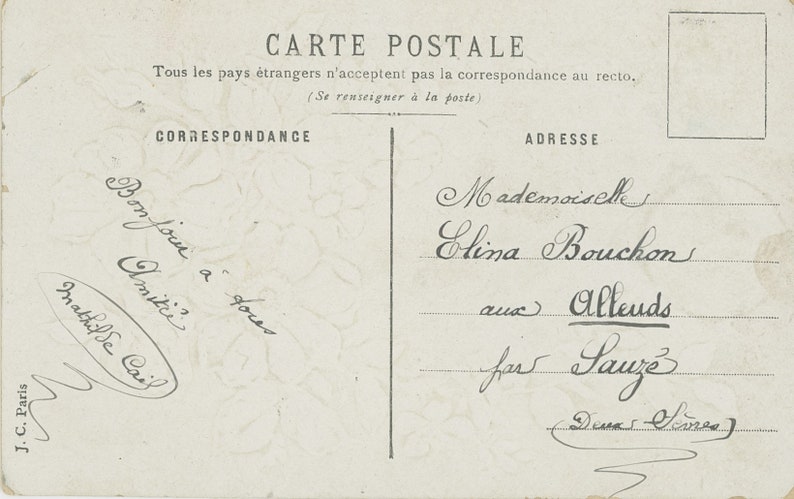 CARTE POSTALE
Tous les pays étrangers n'acceptent pas la correspondance au recto.
(Se renseigner à la poste)
CORRESPONDANCE
Bonjour à tores
Amitié
Mathilde Cail
J. C. Paris
ADRESSE
Mademoiselle
Elina Bouchon
aux Alleuds
par Sauzé
(Deux-Sèvres)